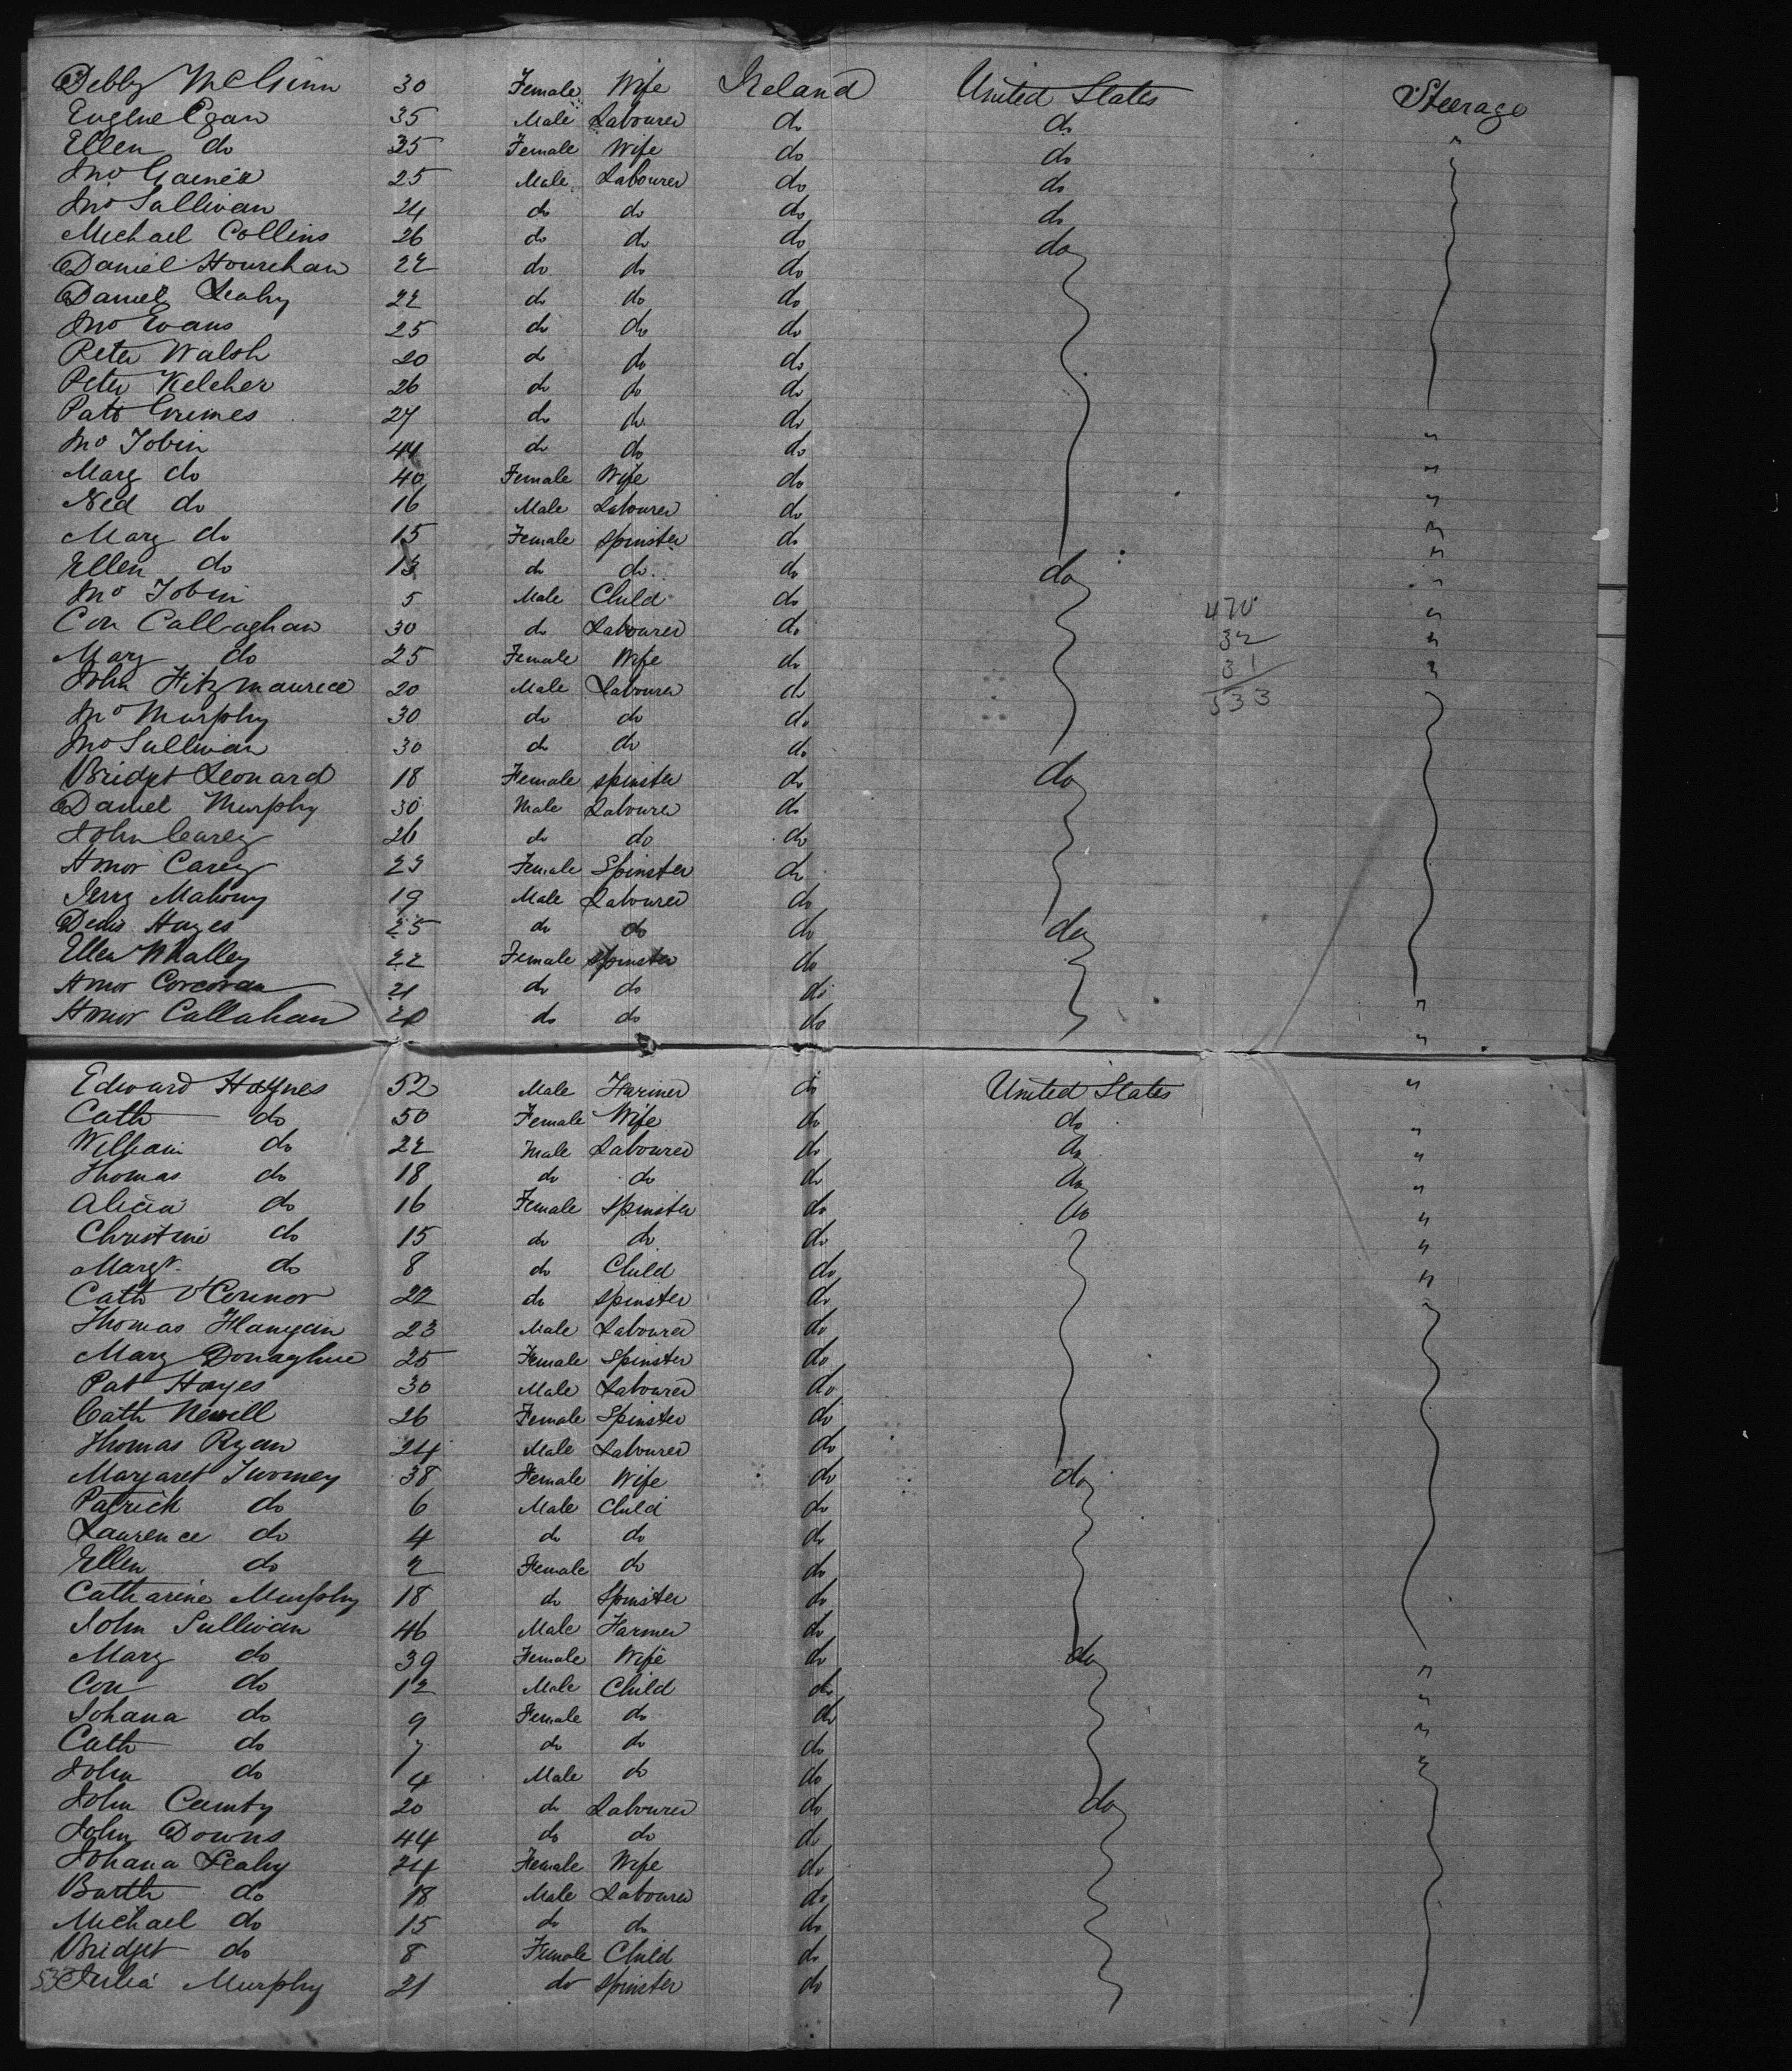 Debby McGinn 30 Female Wife Ireland United States Steerage
Eugene Egan 35 Male Labourer do do "
Ellen do 35 Female Wife do do
Jno 25 Male Labourer do do
Jno Sullivan 24 do do do do
Michael Collins 26 do do do do
Daniel Hourehan 22 do do do
Daniel Leahy 22 do do do
Jno Evans 25 do do do
Peter Walsh 20 do do do
Peter Kelcher 26 do do do
Patk Grimes 27 do do do
Jno Tobin 44 do do do "
Mary do 40 Female Wife do "
Ned do 16 Male Labourer do "
Mary do 15 Female Spinster do "
Ellen do 13 do do do do "
Jno Tobin 5 Male Child do "
Con Callaghan 30 do Labourer do 470 "
Mary do 25 Female Wife do 32 "
John Fitzmaurice 20 Male Labourer do 31 "
Jno Murphy 30 do do do 533
Jno Sullivan 30 do do do
Bridget Leonard 18 Female Spinster do do
Daniel Murphy 30 Male Labourer do
John Carey 26 do do do
Honor Carey 23 Female Spinster do
Jerry Mahony 19 Male Labourer do
Denis Hayes 25 do do do do
Ellen Whalley 22 Female Spinster do
Honor Corcoran 21 do do do "
Honor Callahan 20 do do do "
Edward Haynes 52 Male Farmer do United States "
Cath do 50 Female Wife do do "
William do 22 Male Labourer do do "
Thomas do 18 do do do do "
Alicia do 16 Female Spinster do do "
Christine do 15 do do do "
Margt. do 8 do Child do "
Cath O'Connor 22 do Spinster do
Thomas Flanigan 23 Male Labourer do
Mary Donaghue 25 Female Spinster do
Pat Hayes 30 Male Labourer do
Cath Newell 26 Female Spinster do
Thomas Ryan 24 Male Labourer do
Margaret Twomey 38 Female Wife do do
Patrick do 6 Male Child do
Laurence do 4 do do do
Ellen do 2 Female do do
Catharine Murphy 18 do Spinster do
John Sullivan 46 Male Farmer do
Mary do 39 Female Wife do do "
Con do 12 Male Child do "
Johana do 9 Female do do "
Cath do 7 do do do "
John do 4 Male do do
John 20 do Labourer do do
John Downs 44 do do do
Johana Leahy Female Wife do
Barth do 18 Male Labourer do
Michael do 15 do do do
Bridget do 8 Female Child do
533 Julia Murphy 21 do Spinster do